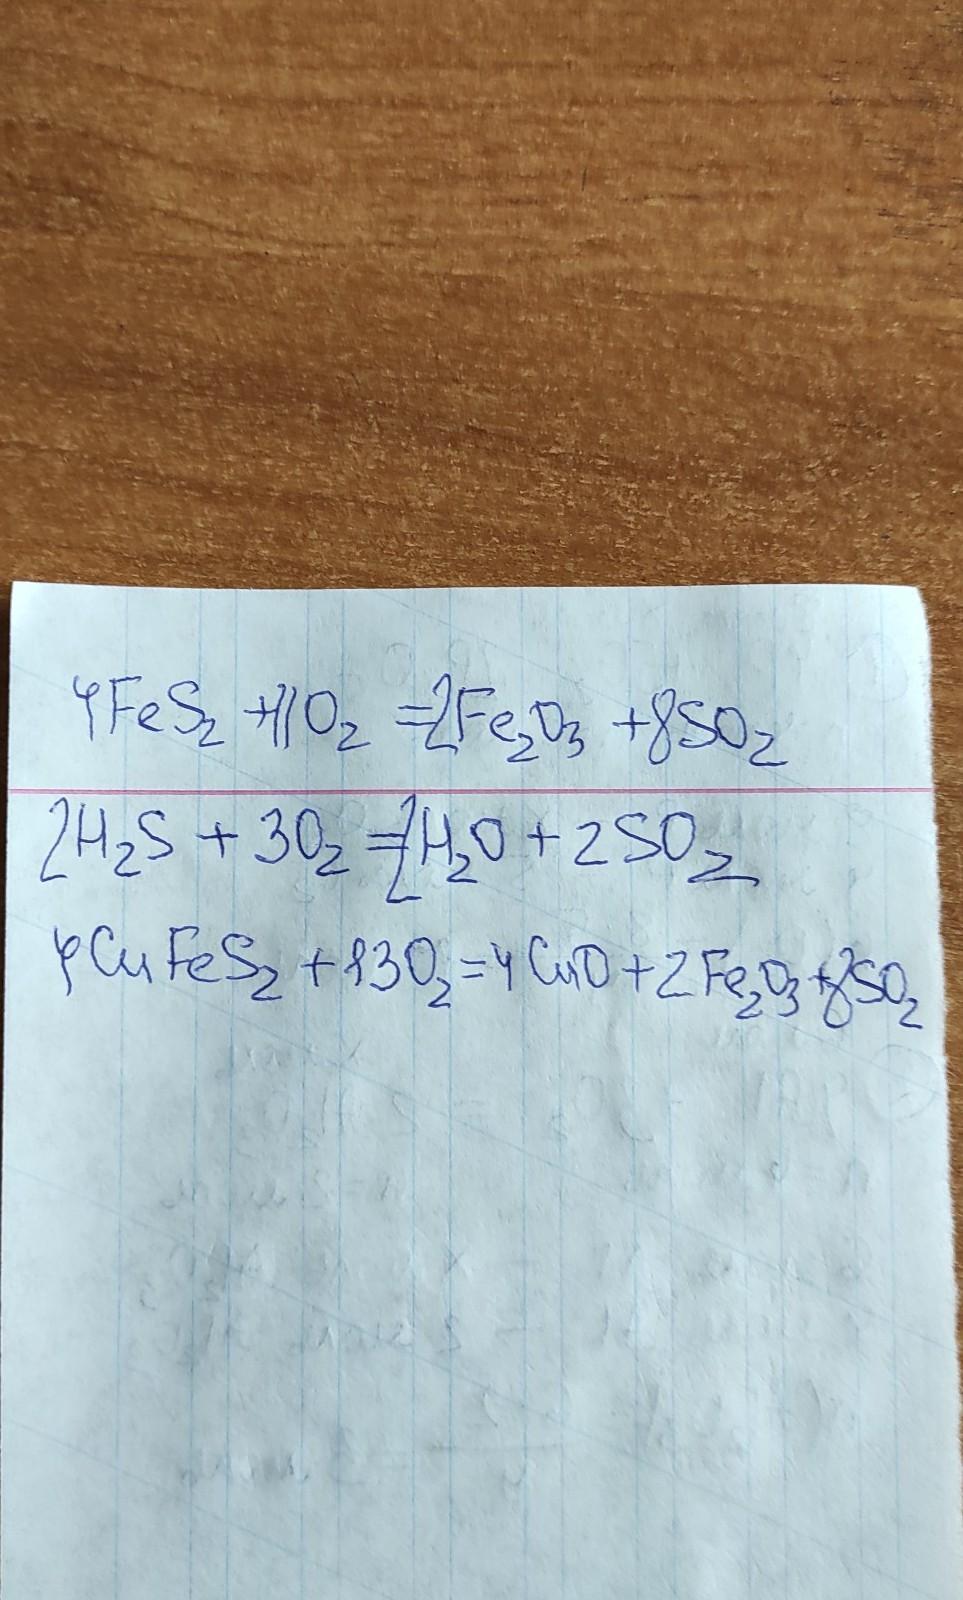 4FeS₂ + 11O₂ = 2Fe₂O₃ + 8SO₂
2H₂S + 3O₂ = 2H₂O + 2SO₂
4CuFeS₂ + 13O₂ = 4CuO + 2Fe₂O₃ + 8SO₂